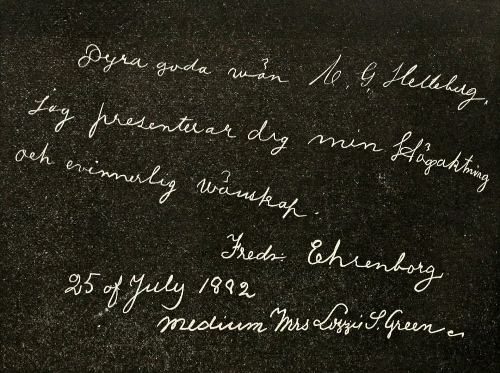 Dyra goda wån C. G. Helleberg.
Jag presenterar dig min Högaktning
och evinnerlig wånskap.
Fredr. Ehrenborg
25 of July 1882
medium Mrs Lizzie S. Green.